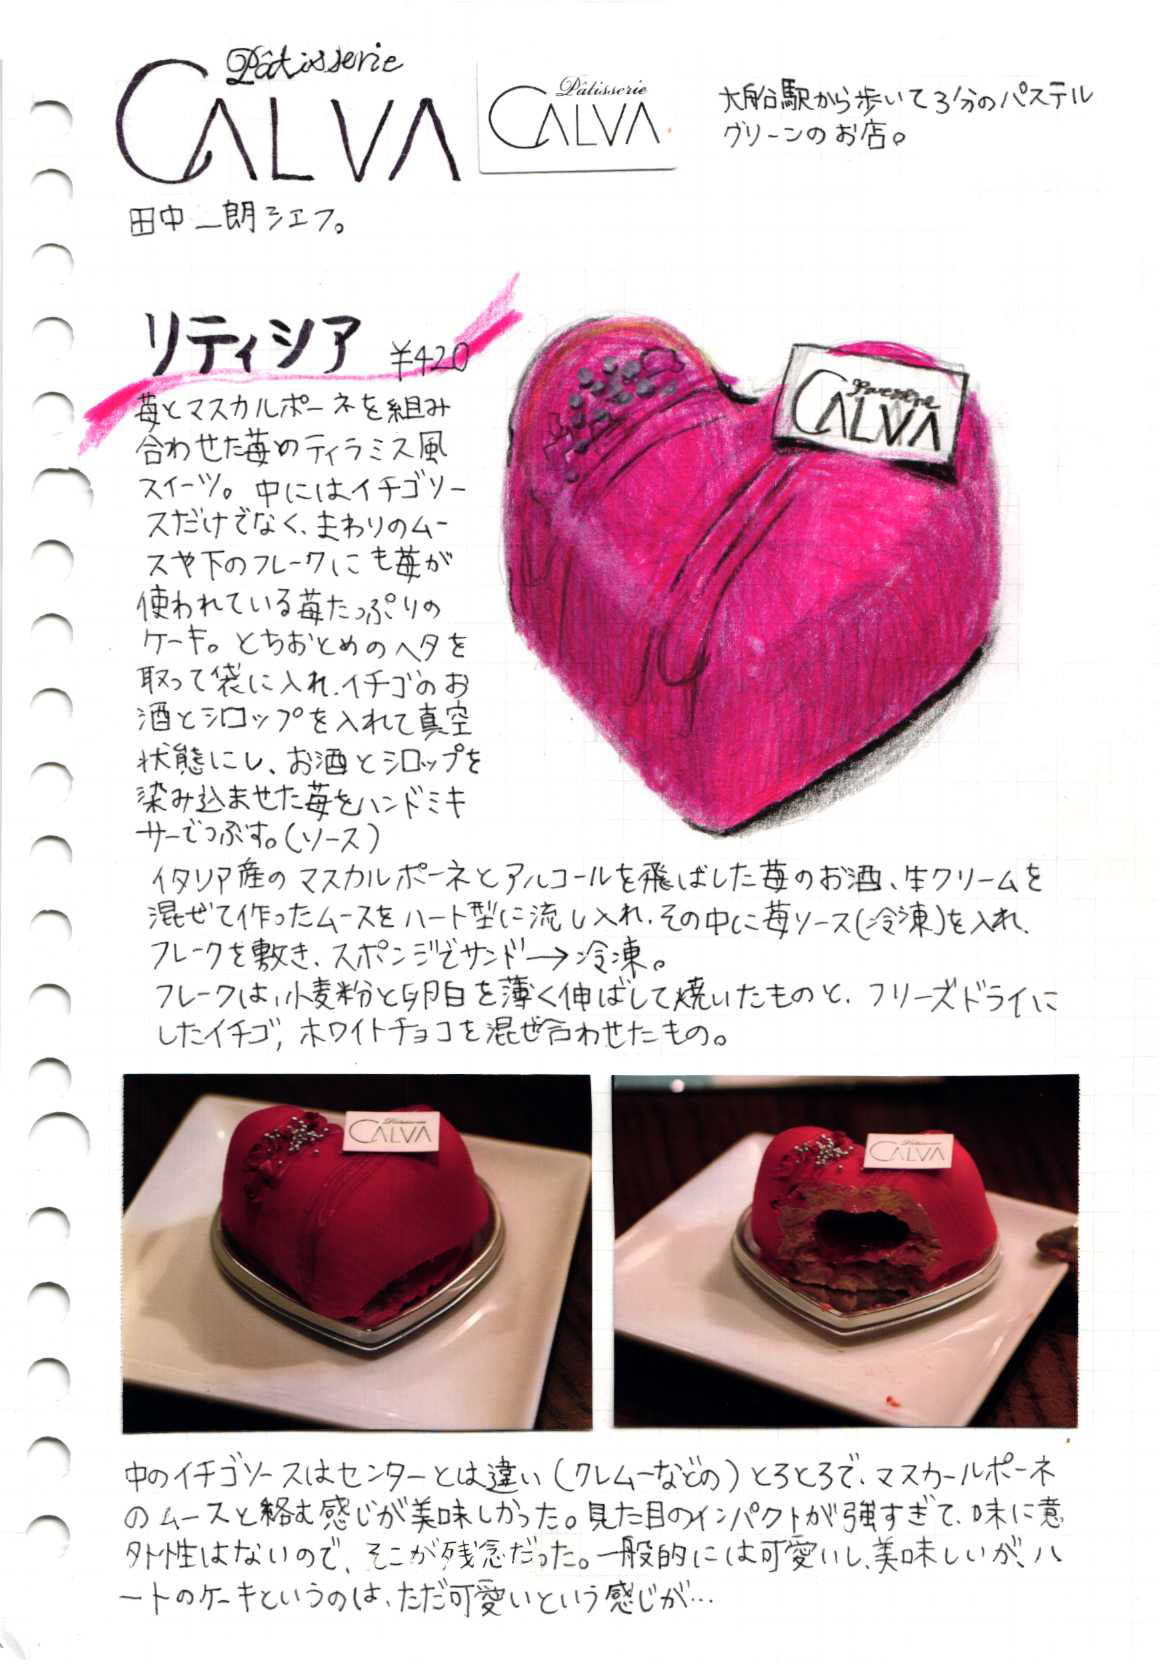 Pâtisserie
CALVA
Pâtisserie
CALVA
大船駅から歩いて3分のパステル
グリーンのお店。
田中二朗シェフ。
リティシア ¥420
苺とマスカルポーネを組み
合わせた苺のティラミス風
スイーツ。中にはイチゴソー
スだけでなく、まわりのムー
スや下のフレークにも苺が
使われている苺たっぷりの
ケーキ。とちおとめのヘタを
取って袋に入れ、イチゴのお
酒とシロップを入れて真空
状態にし、お酒とシロップを
染み込ませた苺をハンドミキ
サーでつぶす。(ソース)
Pâtisserie
CALVA
イタリア産のマスカルポーネとアルコールを飛ばした苺のお酒、生クリームを
混ぜて作ったムースをハート型に流し入れ、その中に苺ソース(冷凍)を入れ、
フレークを敷き、スポンジでサンド→冷凍。
フレークは、小麦粉と卵白を薄く伸ばして焼いたものと、フリーズドライに
したイチゴ, ホワイトチョコを混ぜ合わせたもの。
Pâtisserie
CALVA
Pâtisserie
CALVA
中のイチゴソースはセンターとは違い(クレムーなどの)とろとろで、マスカールポーネ
のムースと絡む感じが美味しかった。見た目のインパクトが強すぎて、味に意
外性はないので、そこが残念だった。一般的には可愛いし、美味しいが、ハ
ートのケーキというのは、ただ可愛いという感じが…